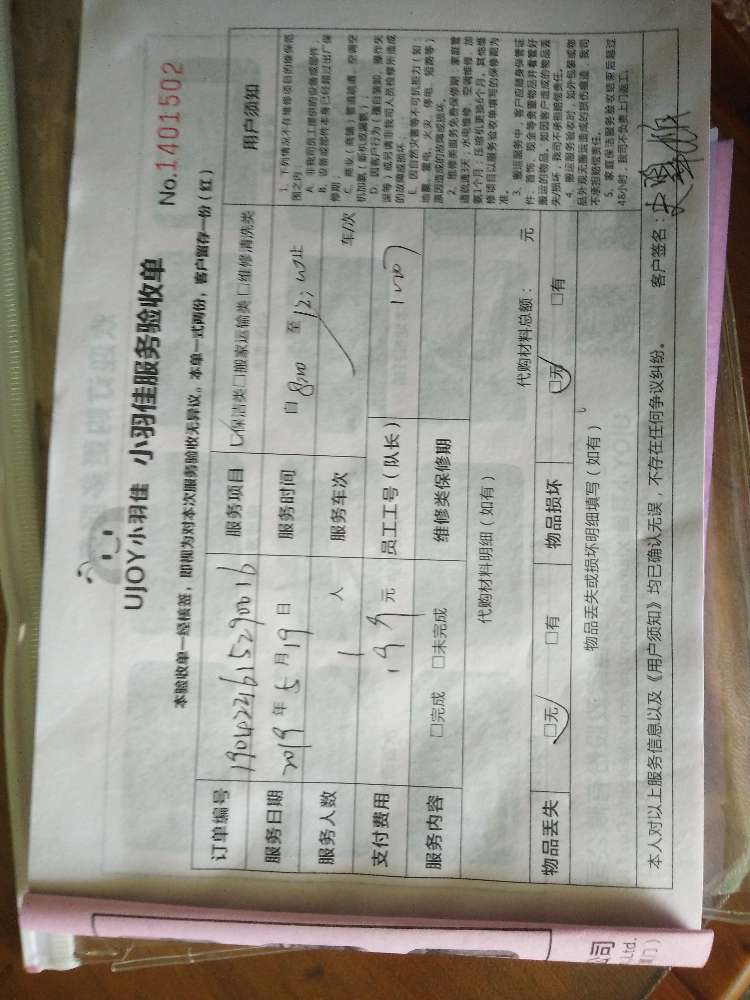 UJOY小羽佳 小羽佳服务验收单
No.1401502
本验收单一经核签，即视为对本次服务验收无异议。本单一式两份，客户留存一份（红）
订单编号 1904224615290016 服务项目 ☑保洁类□搬家运输类□维修清洗类
服务日期 2019年5月19日 服务时间 自 8:00 至 12:00止
服务人数 1 人 服务车次 车/次
支付费用 199 元 员工工号（队长）
服务内容 □完成 □未完成 维修类保修期
代购材料明细（如有） 代购材料总额： 元
物品丢失 ☑无 □有 物品损坏 ☑无 □有
物品丢失或损坏明细填写（如有）
用户须知
1. 下列情况不在维修项目的维保范
围之内：
A. 非我司员工提供的设备或部件，
B. 设备或部件本身已经超过出厂保
修期，
C. 商业（商铺）管道疏通，空调空
机加氨（新机或漏氨）
D. 因客户行为（擅自装卸、操作失
误等）或另请非我司人员检修所造成
的故障或损坏；
E. 因自然灾害等不可抗拒力（如：
地震、雷电、火灾、停电、短路等）
原因造成的故障或损坏。
2. 维修类服务免费保修期：家庭管
道疏通3天，水电维修、空调维修、加
氨1个月；压缩机更换6个月。其他维
修项目以服务验收单填写的保修期为
准。
3. 搬运服务中，客户应随身保管证
件、首饰、现金等贵重物品并看管好
搬运的物品，如因客户造成的物品丢
失/损坏，我司不承担赔偿责任。
4. 搬运服务验收时，如外包装或物
品外观无搬运造成的损伤痕迹，我司
不承担赔偿责任。
5. 家庭保洁服务验收结束后超过
48小时，我司不负责上门返工。
本人对以上服务信息以及《用户须知》均已确认无误，不存在任何争议纠纷。 客户签名：
公司
Ltd.